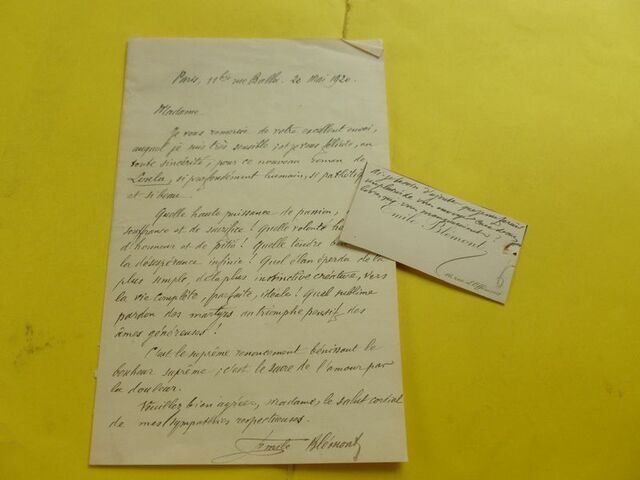 Paris, 11bis rue Balla. 20 Mai 1920.
Madame
Je vous remercie de votre excellent envoi,
auquel je suis très sensible, et je vous félicite, en
toute sincérité, pour ce nouveau roman de
si profondément humain, si pathétique
et si beau.
Quelle haute puissance de passion, de
souffrance et de sacrifice! Quelle volonté
d'honneur et de pitié! Quelle tendre
la désespérance infinie! Quel élan éperdu de la
plus simple, de la plus instinctive créature, vers
la vie complète, parfaite, idéale! Quel sublime
pardon des martyrs au triomphe pensif des
âmes généreuses!
C'est le suprême renoncement bénissant le
bonheur suprême; c'est le sacre de l'amour par
la douleur.
Veuillez bien agréer, madame, le salut cordial
de mes sympathies respectueuses.
Emile Blémont
Emile Blémont